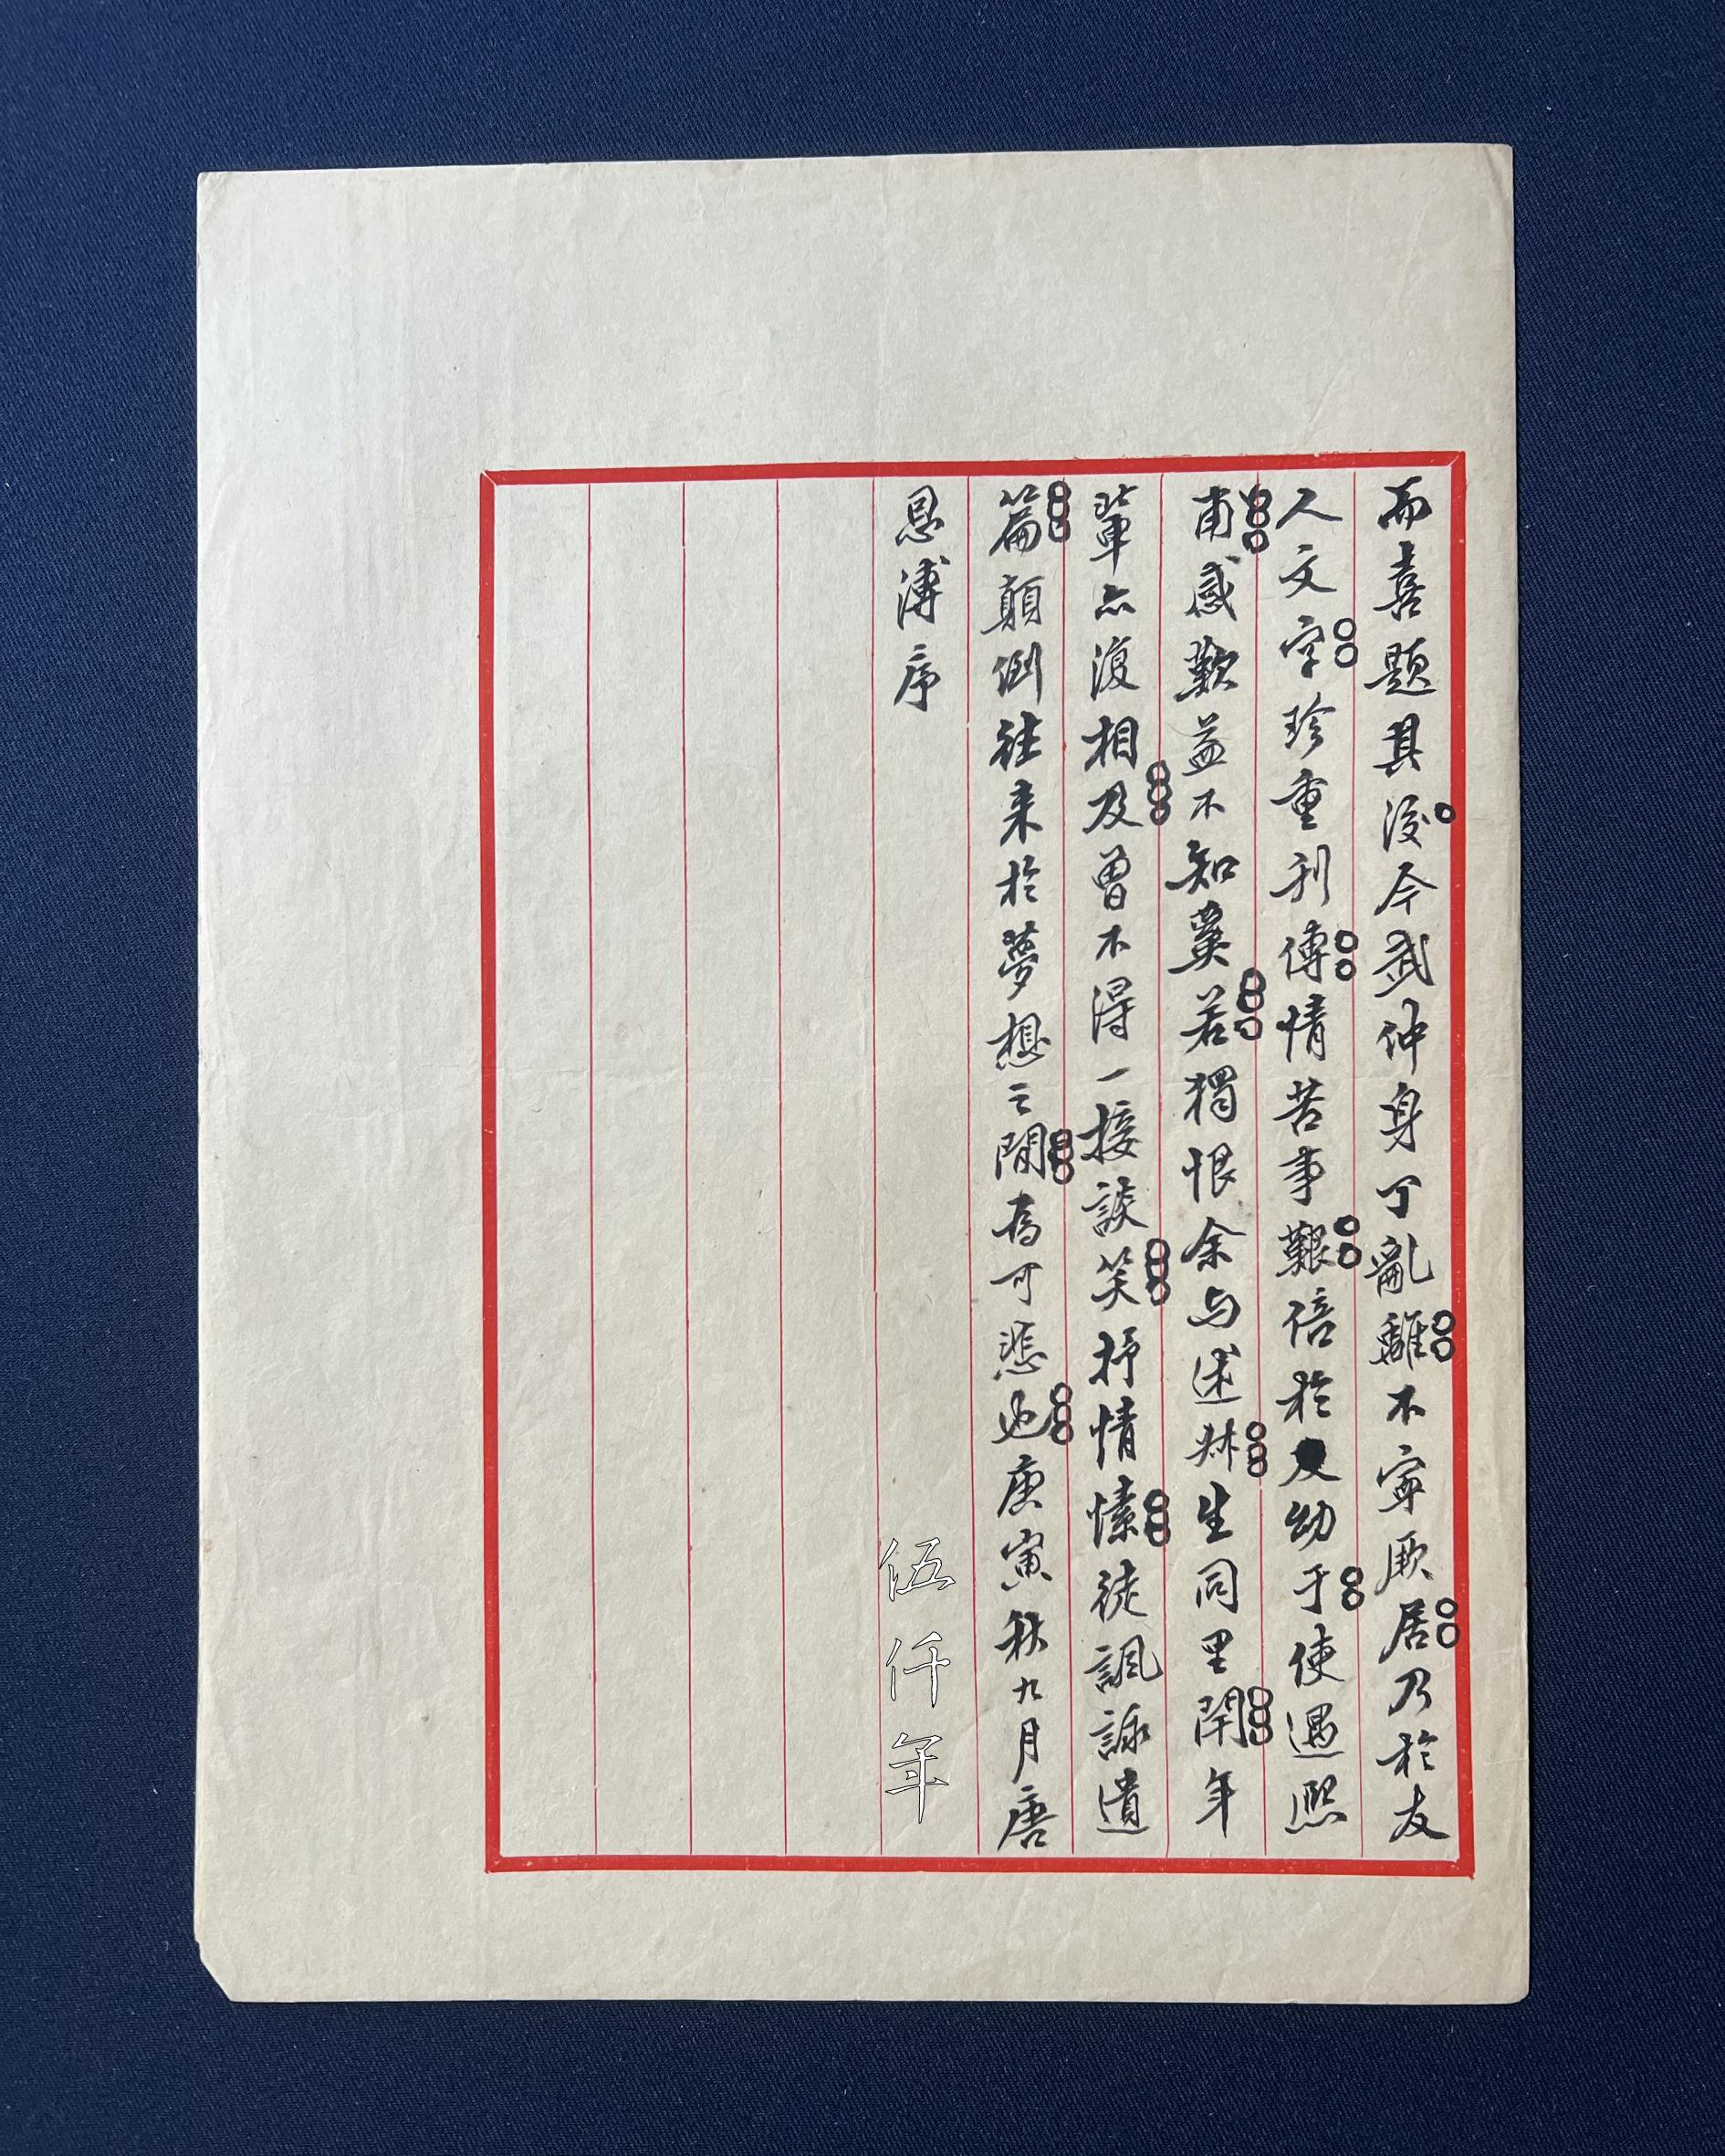 而喜題其後今武仲身丁亂離不寧厥居乃於友
人文字珍重刊傳情苦事艱倍於幼于使遇熙
甫感歎益不知奚若獨恨余与述林生同里閈年
輩亦復相及曾不得一接談笑抒情愫徒諷詠遺
篇顛倒往来於夢想之間為可悲也庚寅秋九月唐
恩溥序
伍仟年